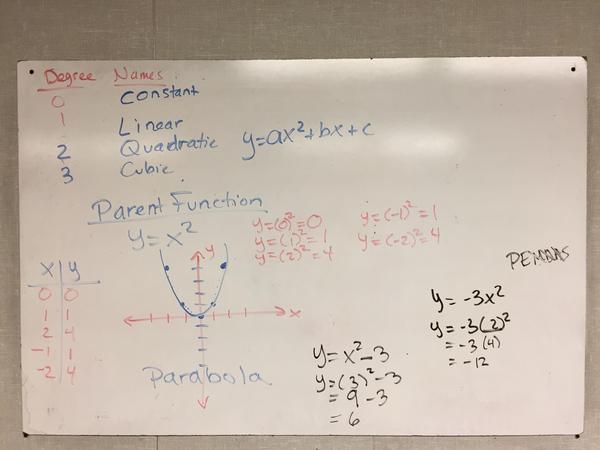 Degree Names
0 Constant
1 Linear
2 Quadratic y=ax²+bx+c
3 Cubic
Parent Function
y=x²
y=(0)²=0
y=(1)²=1
y=(2)²=4
y=(-1)²=1
y=(-2)²=4
x y
0 0
1 1
2 4
-1 1
-2 4
y
x
Parabola
y=x²-3
y=(3)²-3
=9-3
=6
y=-3x²
y=-3(2)²
=-3(4)
=-12